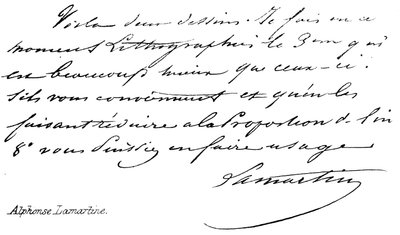 Voila deux dessins. Je fais en ce
moment Lithographier le 3em qui
est beaucoup mieux que ceux-ci.
Sils vous conviennent et qu'en les
faisant réduire a la Proportion de l'in
8° vous Puissiez en faire usage
Lamartine
Alphonse Lamartine.